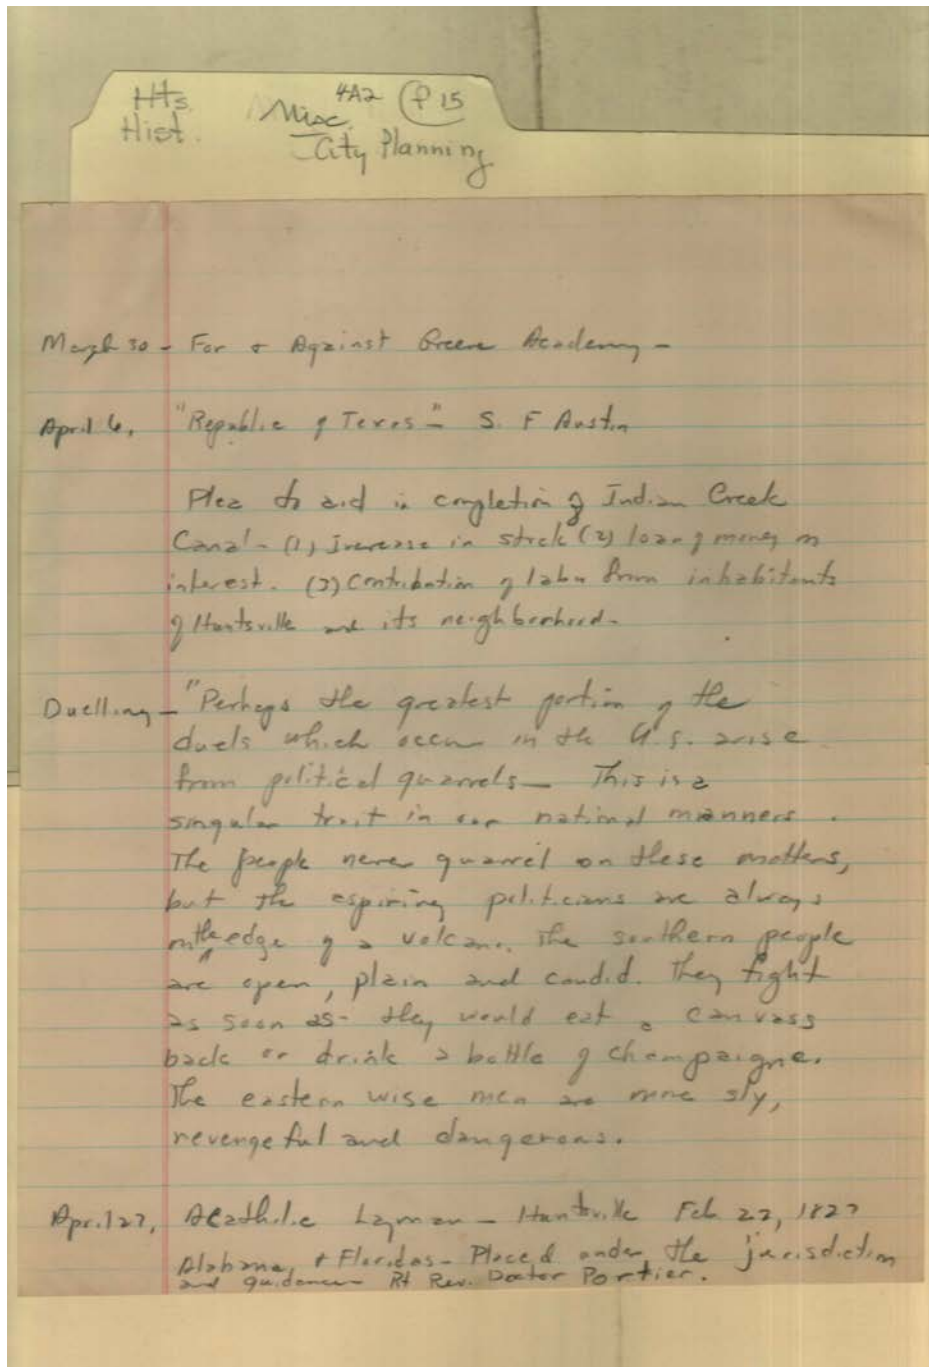 Hts. Hist.
4A2 P 15
Misc.
City Planning
March 30 - For & Against Greene Academy -
April 6, "Republic of Texas" - S. F Austin
Plea to aid in completion of Indian Creek
Canal - (1) Increase in stock (2) loan of money on
interest. (3) Contribution of labor from inhabitants
of Huntsville and its neighborhood -
Duelling - "Perhaps the greatest portion of the
duels which occur in the U.S. arise
from political quarrels - This is a
singular trait in our national manners.
The people never quarrel on these matters,
but the aspiring politicians are always
on the edge of a volcano. The southern people
are open, plain and candid. They fight
as soon as they would eat a canvass
back or drink a bottle of champaigne.
The eastern wise men are more sly,
revengeful and dangerous.
April 27, A Catholic Layman - Huntsville Feb 22, 1827
Alabama, & Floridas - Placed under the jurisdiction
and guidance Rt Rev. Doctor Portier.